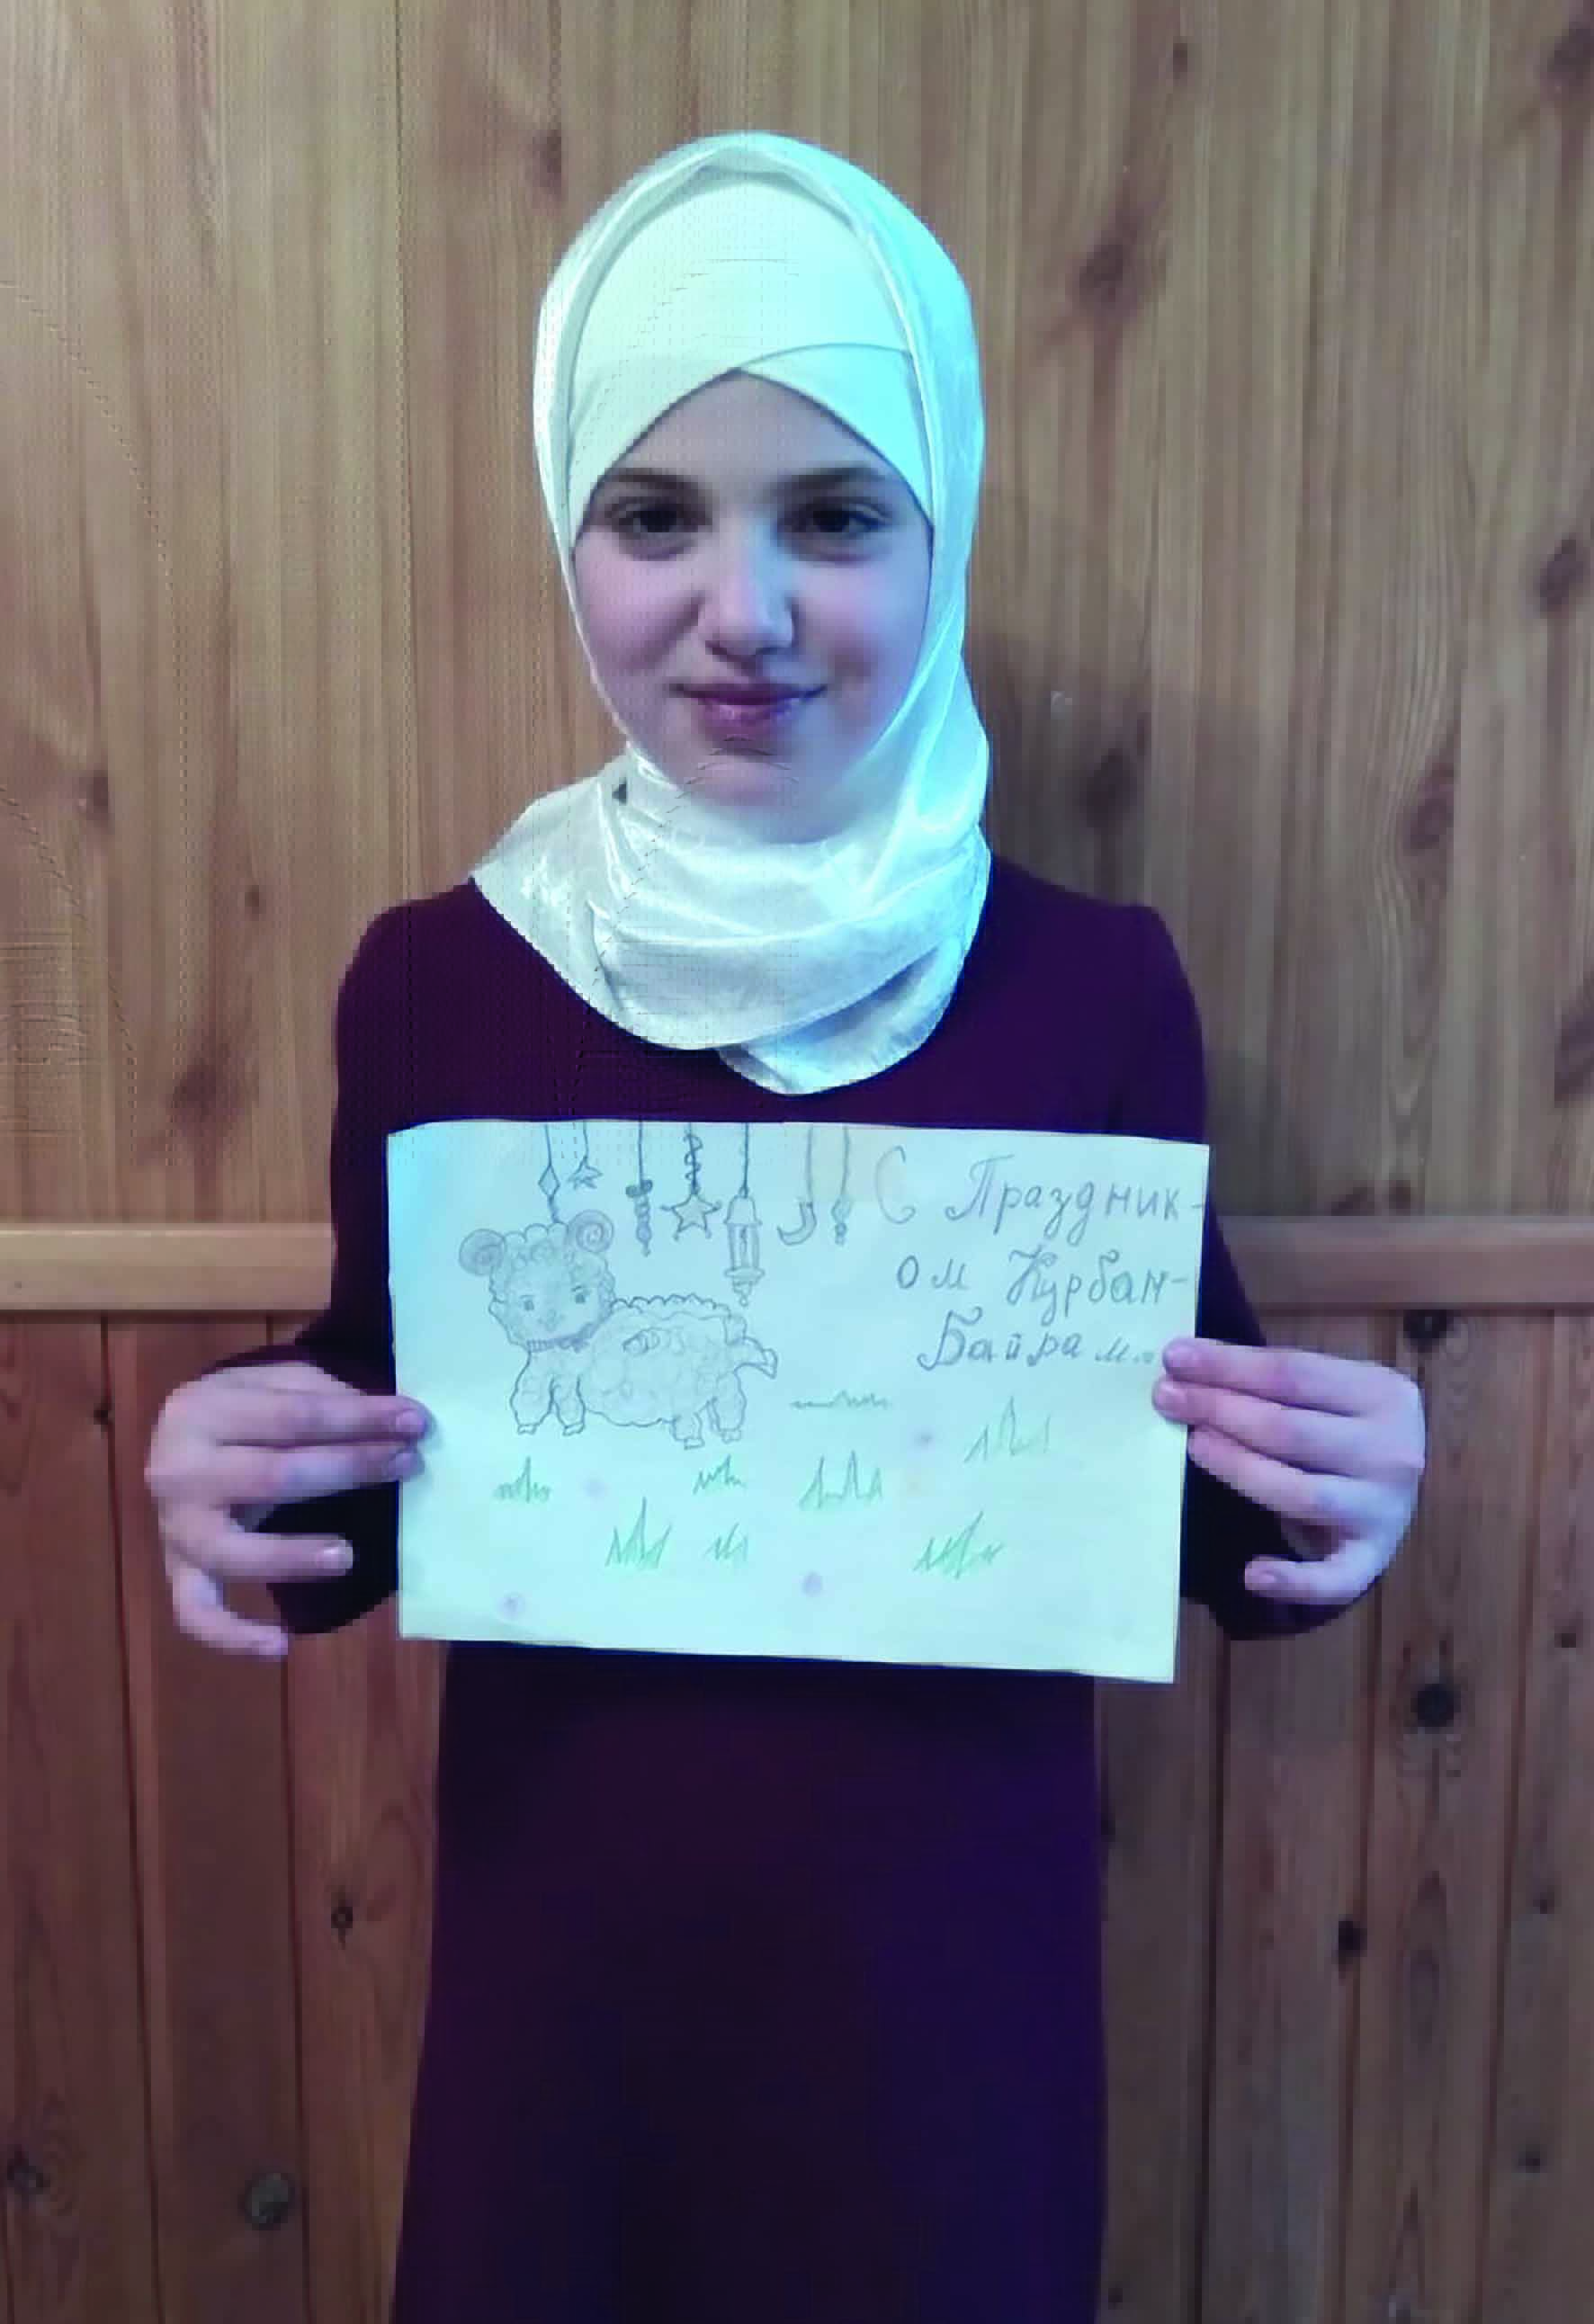 С Праздник-
ом Курбан-
Байрам..